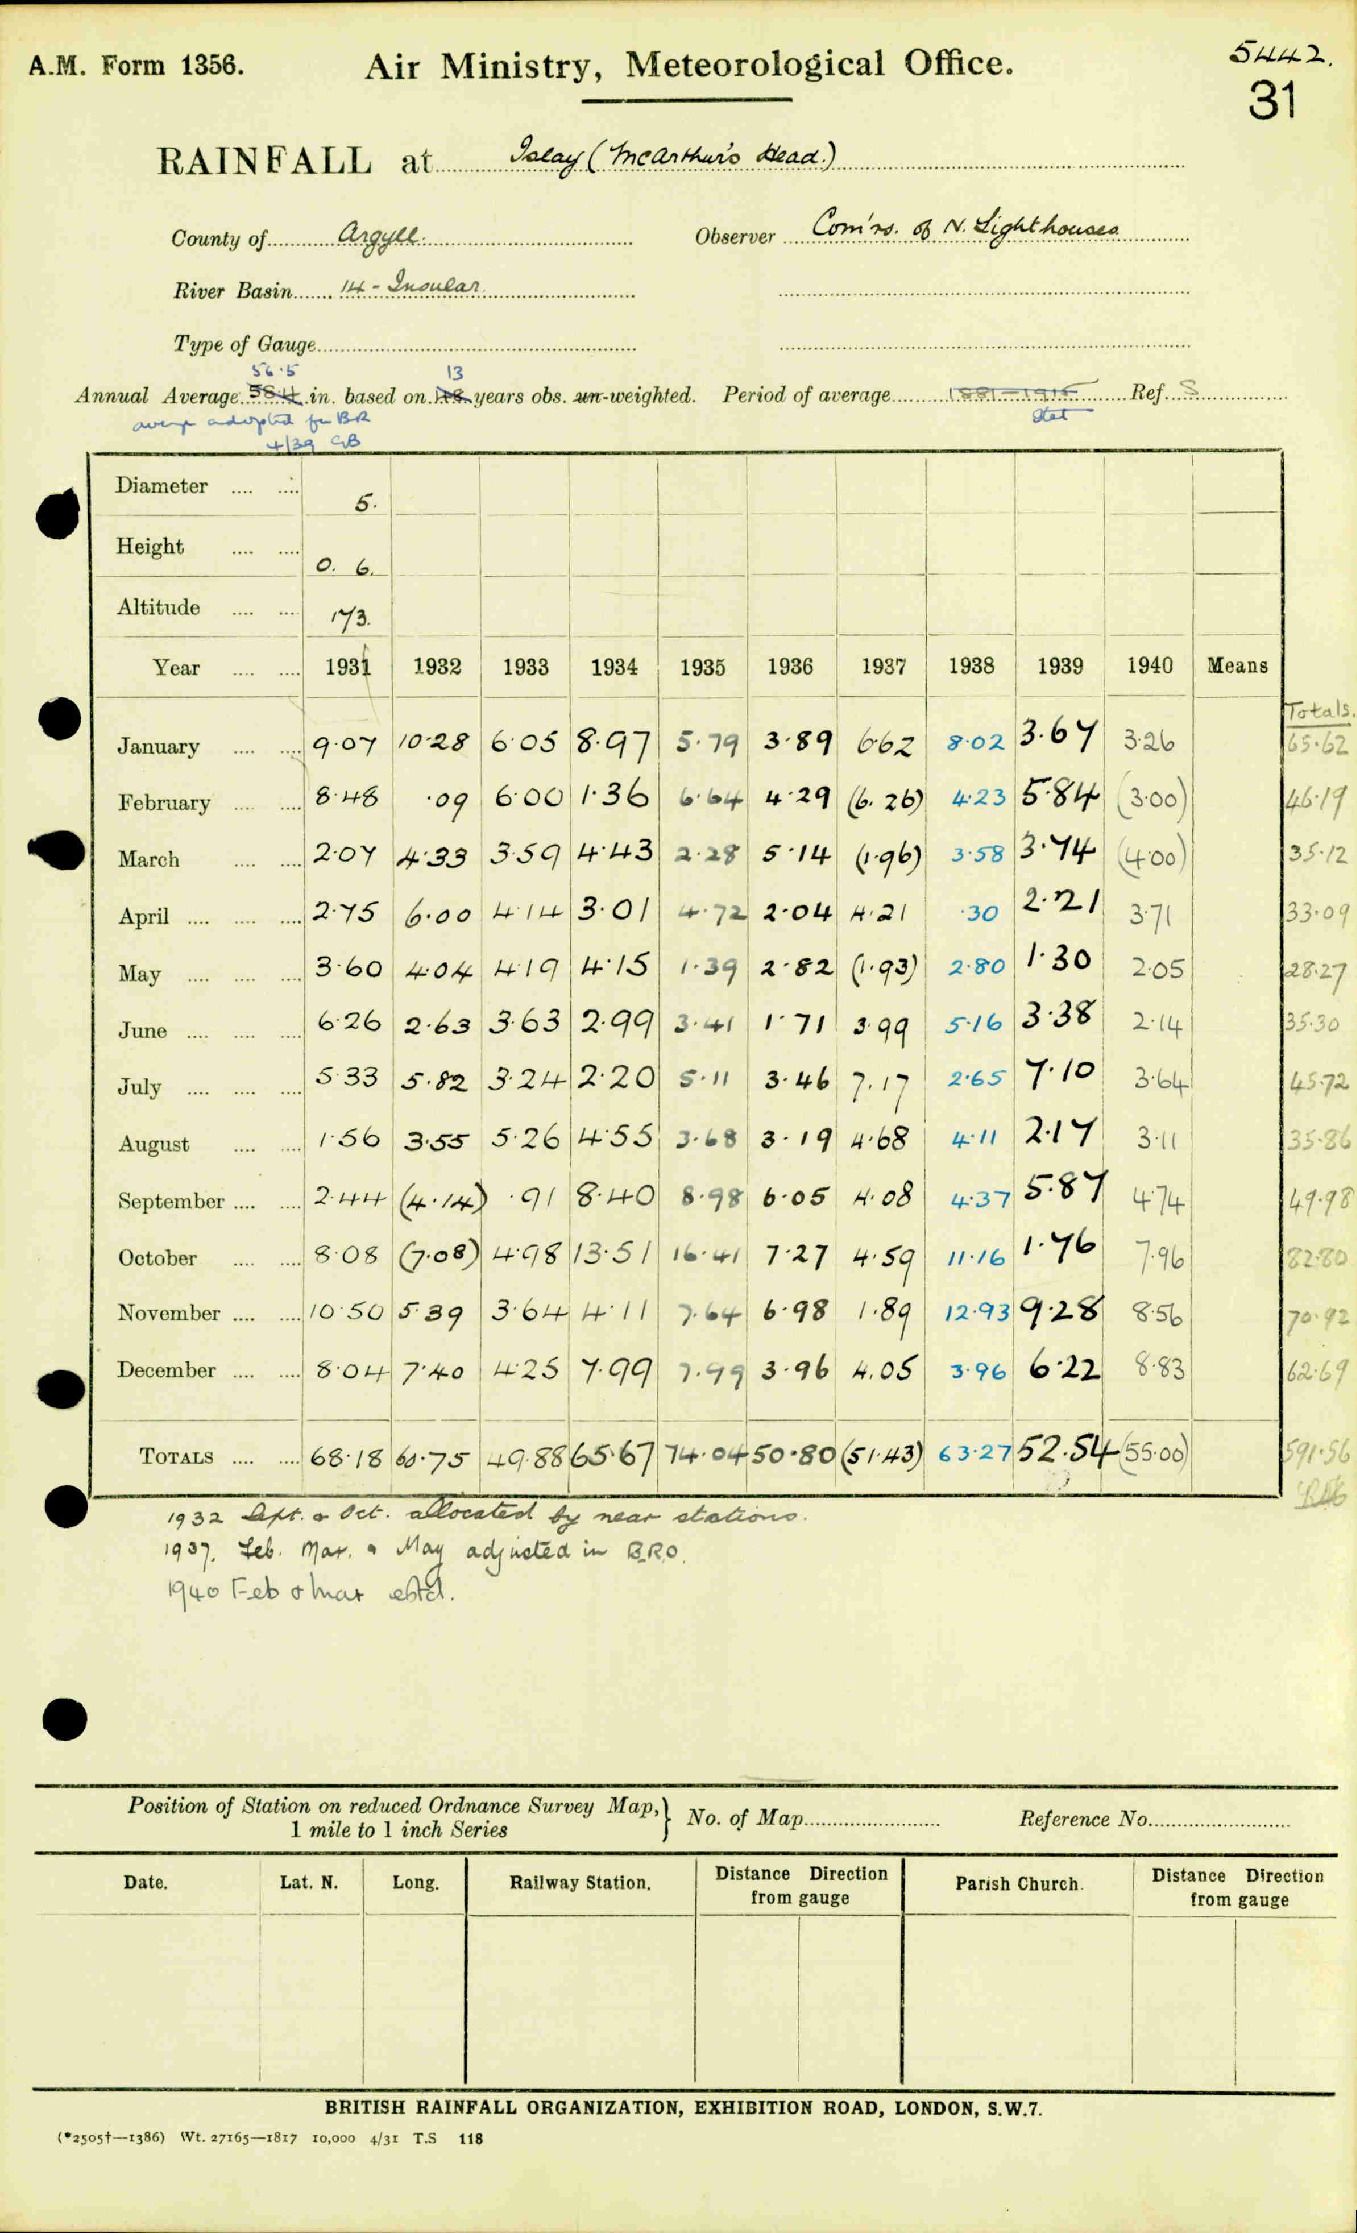 A.M. Form 1356.
Air Ministry, Meteorological Office.
5442.
31
RAINFALL at Islay (McArthur's Head.)
County of Argyll. Observer Com'rs. of N. Lighthouses
River Basin 14 - Insular.
Type of Gauge
56.5 13
Annual Average 58.4 in. based on years obs. un-weighted. Period of average 1881-1915 Ref. S
stet
average adopted for BR
4/39 GB
Diameter 5.
Height 0. 6.
Altitude 173.
Year 1931 1932 1933 1934 1935 1936 1937 1938 1939 1940 Means
Totals.
January 9.07 10.28 6.05 8.97 5.79 3.89 6.62 8.02 3.67 3.26 65.62
February 8.48 .09 6.00 1.36 6.64 4.29 (6.26) 4.23 5.84 (3.00) 46.19
March 2.07 4.33 3.59 4.43 2.28 5.14 (1.96) 3.58 3.74 (4.00) 35.12
April 2.75 6.00 4.14 3.01 4.72 2.04 4.21 .30 2.21 3.71 33.09
May 3.60 4.04 4.19 4.15 1.39 2.82 (1.93) 2.80 1.30 2.05 28.27
June 6.26 2.63 3.63 2.99 3.41 1.71 3.99 5.16 3.38 2.14 35.30
July 5.33 5.82 3.24 2.20 5.11 3.46 7.17 2.65 7.10 3.64 45.72
August 1.56 3.55 5.26 4.55 3.68 3.19 4.68 4.11 2.17 3.11 35.86
September 2.44 (4.14) .91 8.40 8.98 6.05 4.08 4.37 5.87 4.74 49.98
October 8.08 (7.08) 4.98 13.51 16.41 7.27 4.59 11.16 1.76 7.96 82.80
November 10.50 5.39 3.64 4.11 7.64 6.98 1.89 12.93 9.28 8.56 70.92
December 8.04 7.40 4.25 7.99 7.99 3.96 4.05 3.96 6.22 8.83 62.69
TOTALS 68.18 60.75 49.88 65.67 74.04 50.80 (51.43) 63.27 52.54 (55.00) 591.56
1932 Sept. & Oct. allocated by near stations.
1937. Feb. Mar. & May adjusted in B.R.O.
1940 Feb & Mar estd.
Position of Station on reduced Ordnance Survey Map, 1 mile to 1 inch Series } No. of Map Reference No.
Date. Lat. N. Long. Railway Station. Distance Direction from gauge Parish Church. Distance Direction from gauge
BRITISH RAINFALL ORGANIZATION, EXHIBITION ROAD, LONDON, S.W.7.
(*2505†—1386) Wt. 27165—1817 10,000 4/31 T.S 118